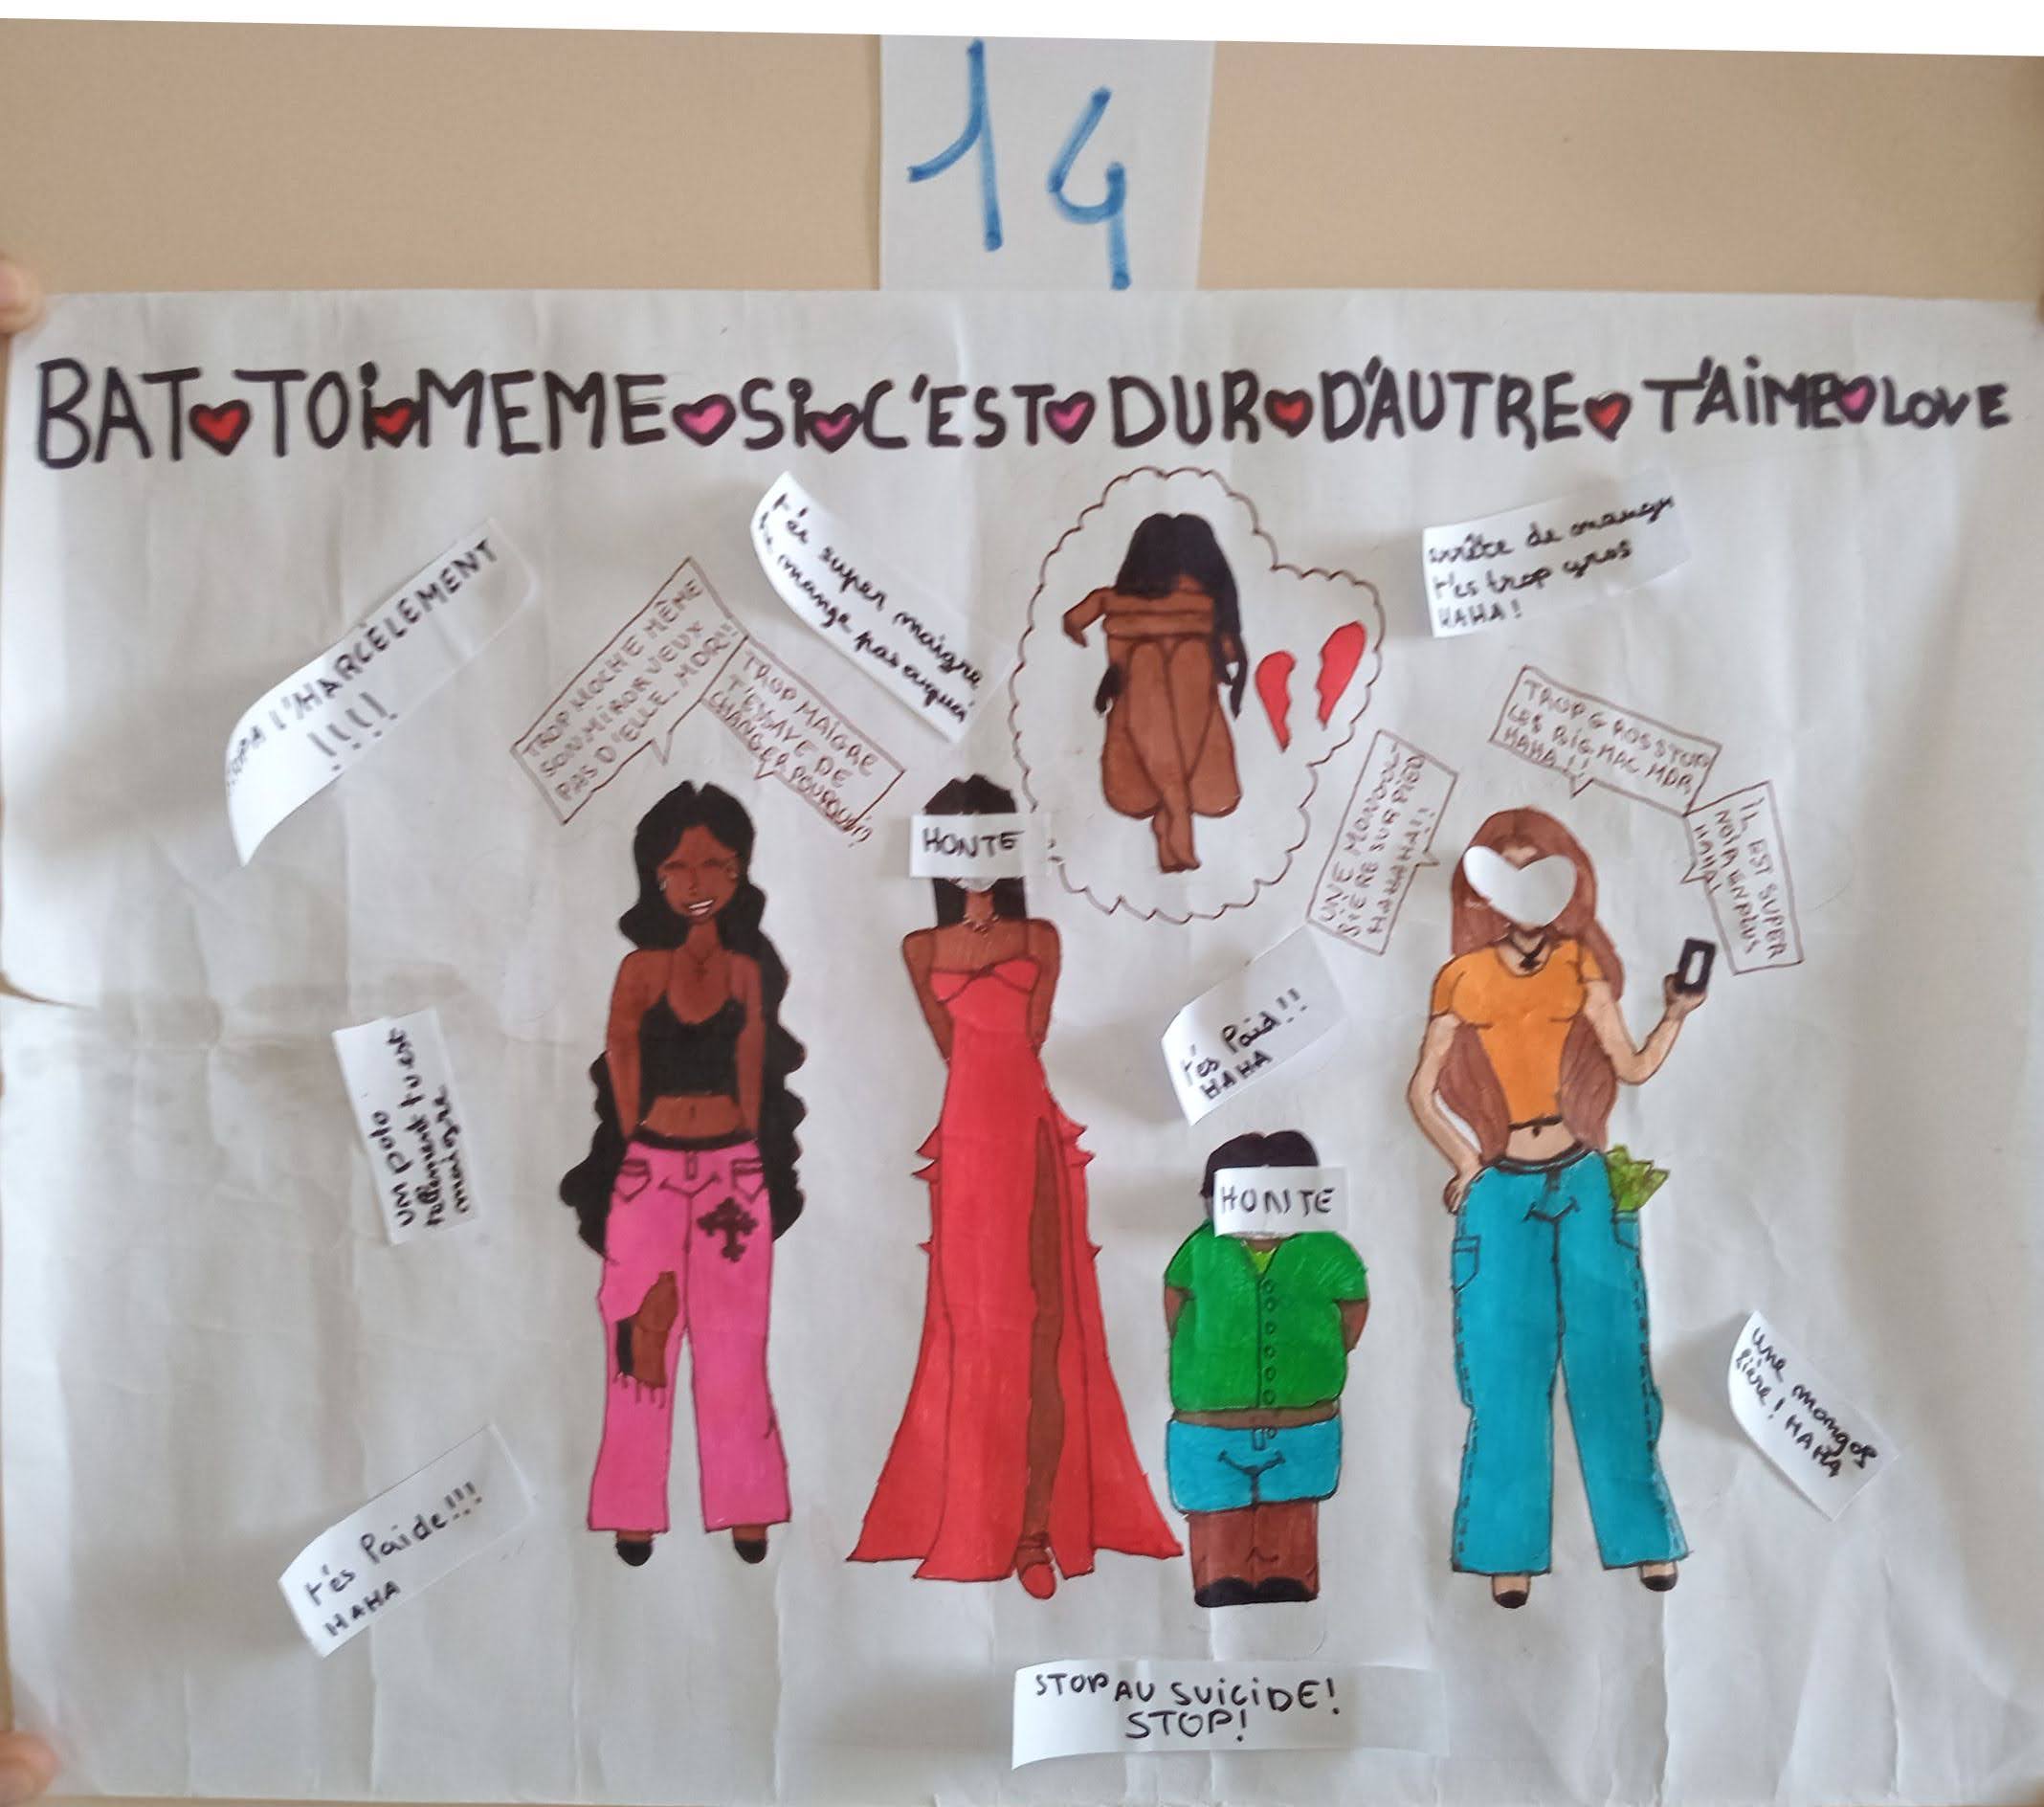 14
BAT TOi MEME Si C'EST DUR D'AUTRE T'AiME LOVE
L'HARCELEMENT
!!!!
TROP MOCHE MÊNE
SON MIROR VEUX
PAS D'ELLE MDR!!
TROP MAIGRE
T'ESSAYE DE
CHANGER POURQUOI?
t'es super maigre
mange pas
arrête de manger
t'es trop gros
HAHA!
UNE MONGOL-
SIÈRE SUR PIED
HAHAHA!!
TROP GROS STOP
LES BIG MAC MDR
HAHA!!
IL EST SUPER
NOIR EN PLUS
HAHA!
HONTE
t'es Paid!!
HAHA
HONTE
un poto
tellement tu est
maigre
t'es Paide!!!
HAHA
une mongol
fière! HAHA
STOP AU SUiCiDE!
STOP!